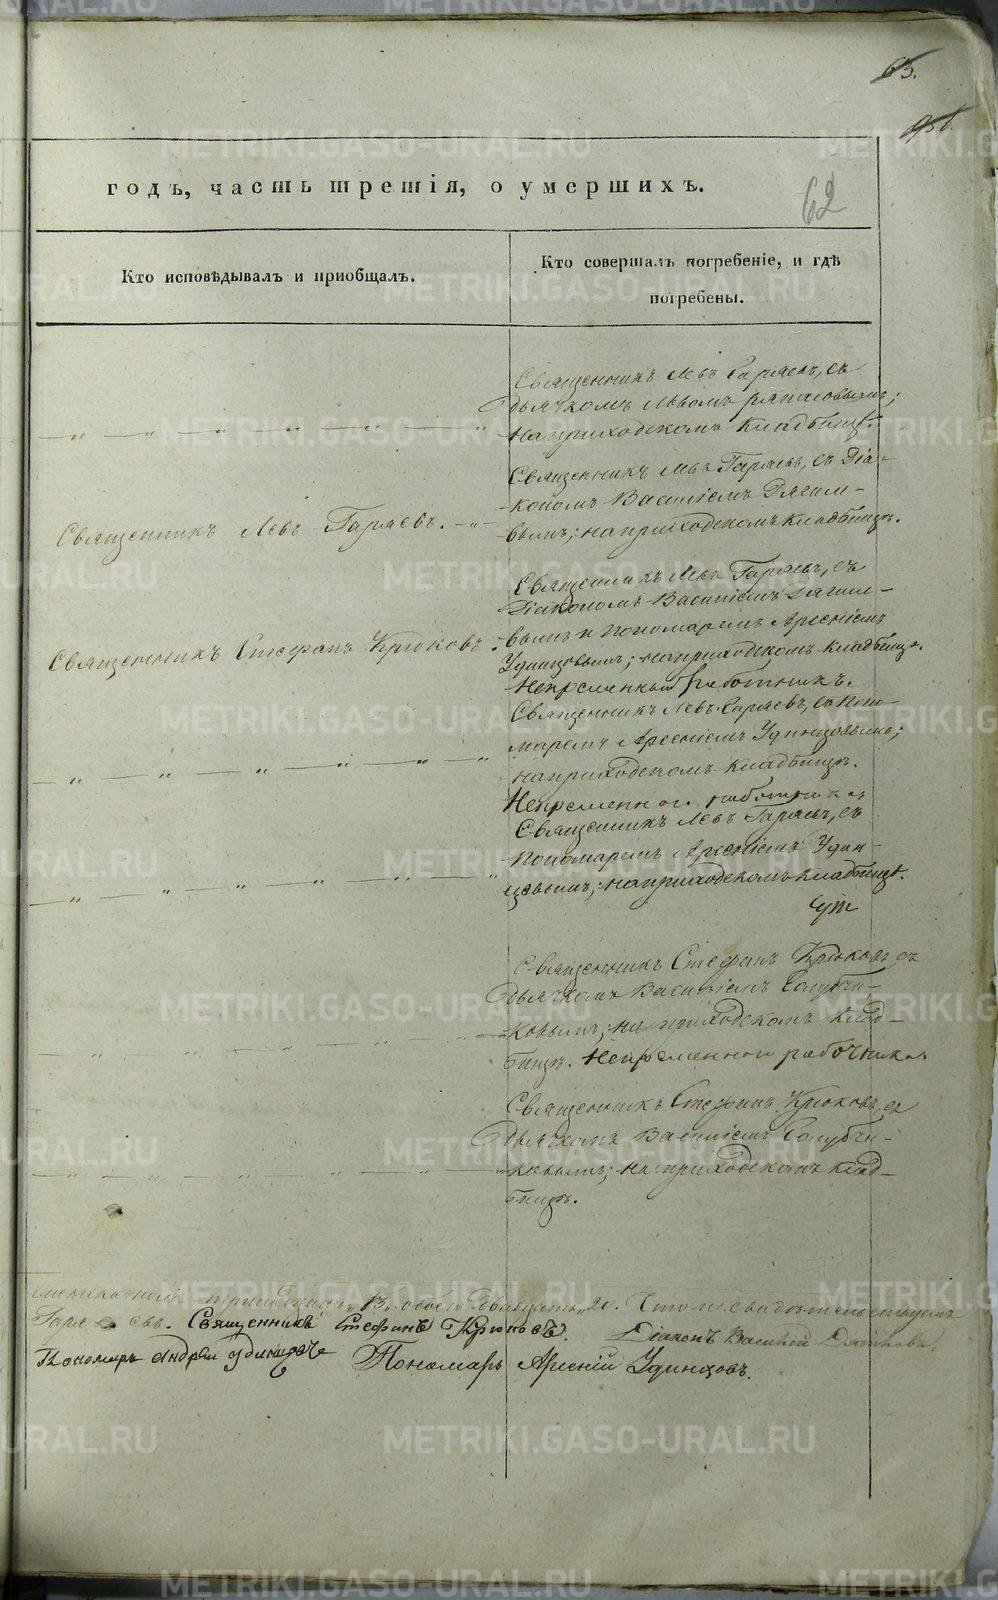 63.
62
годъ, часть третія, о умершихъ.
Кто исповѣдывалъ и приобщалъ.
Кто совершалъ погребеніе, и гдѣ
погребены.
Священникъ Левъ Гаряевъ, съ
дьячкомъ Львомъ
на приходскомъ кладбищѣ.
Священникъ Левъ Гаряевъ, съ Діа-
кономъ Василіемъ Дягиле-
вымъ; на приходскомъ кладбищѣ.
Священникъ Левъ Гаряевъ. - " -
Священникъ Левъ Гаряевъ, съ
Діакономъ Василіемъ Дягиле-
вымъ и Пономаремъ Арсеніемъ
Удинцовымъ; на приходскомъ кладбищѣ.
Священникъ Стефанъ Крюковъ.
Непременный работникъ.
Священникъ Левъ Гаряевъ, съ Поно-
маремъ Арсеніемъ Удинцовымъ;
на приходскомъ кладбищѣ.
Непременного работника
Священникъ Левъ Гаряевъ, съ
Пономаремъ Арсеніемъ Удин-
цовымъ; на приходскомъ кладбищѣ.
Священникъ Стефанъ Крюковъ съ
дьячкомъ Василіемъ Голубчи-
ковымъ; на приходскомъ клад-
бищѣ. Непременного работника
Священникъ Стефанъ Крюковъ съ
Дьячкомъ Василіемъ Голубчи-
ковымъ; на приходскомъ клад-
бищѣ.
тринадцать "13" обоего двадцать "20. Что и свидѣтельствуемъ
Священникъ Стефанъ Крюковъ. Діаконъ Василій
Пономарь Андрей Удинцовъ Пономарь Арсеній Удинцовъ.
METRIKI.GASO-URAL.RU